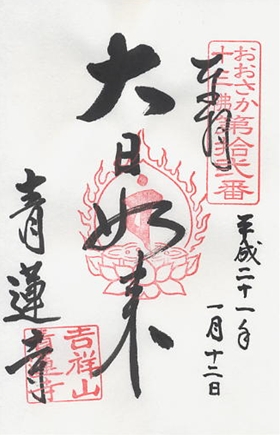 おおさか
十三佛第拾弐番
奉拝
平成二十一年
一月十二日
大日如来
青蓮寺
吉祥山
青蓮寺